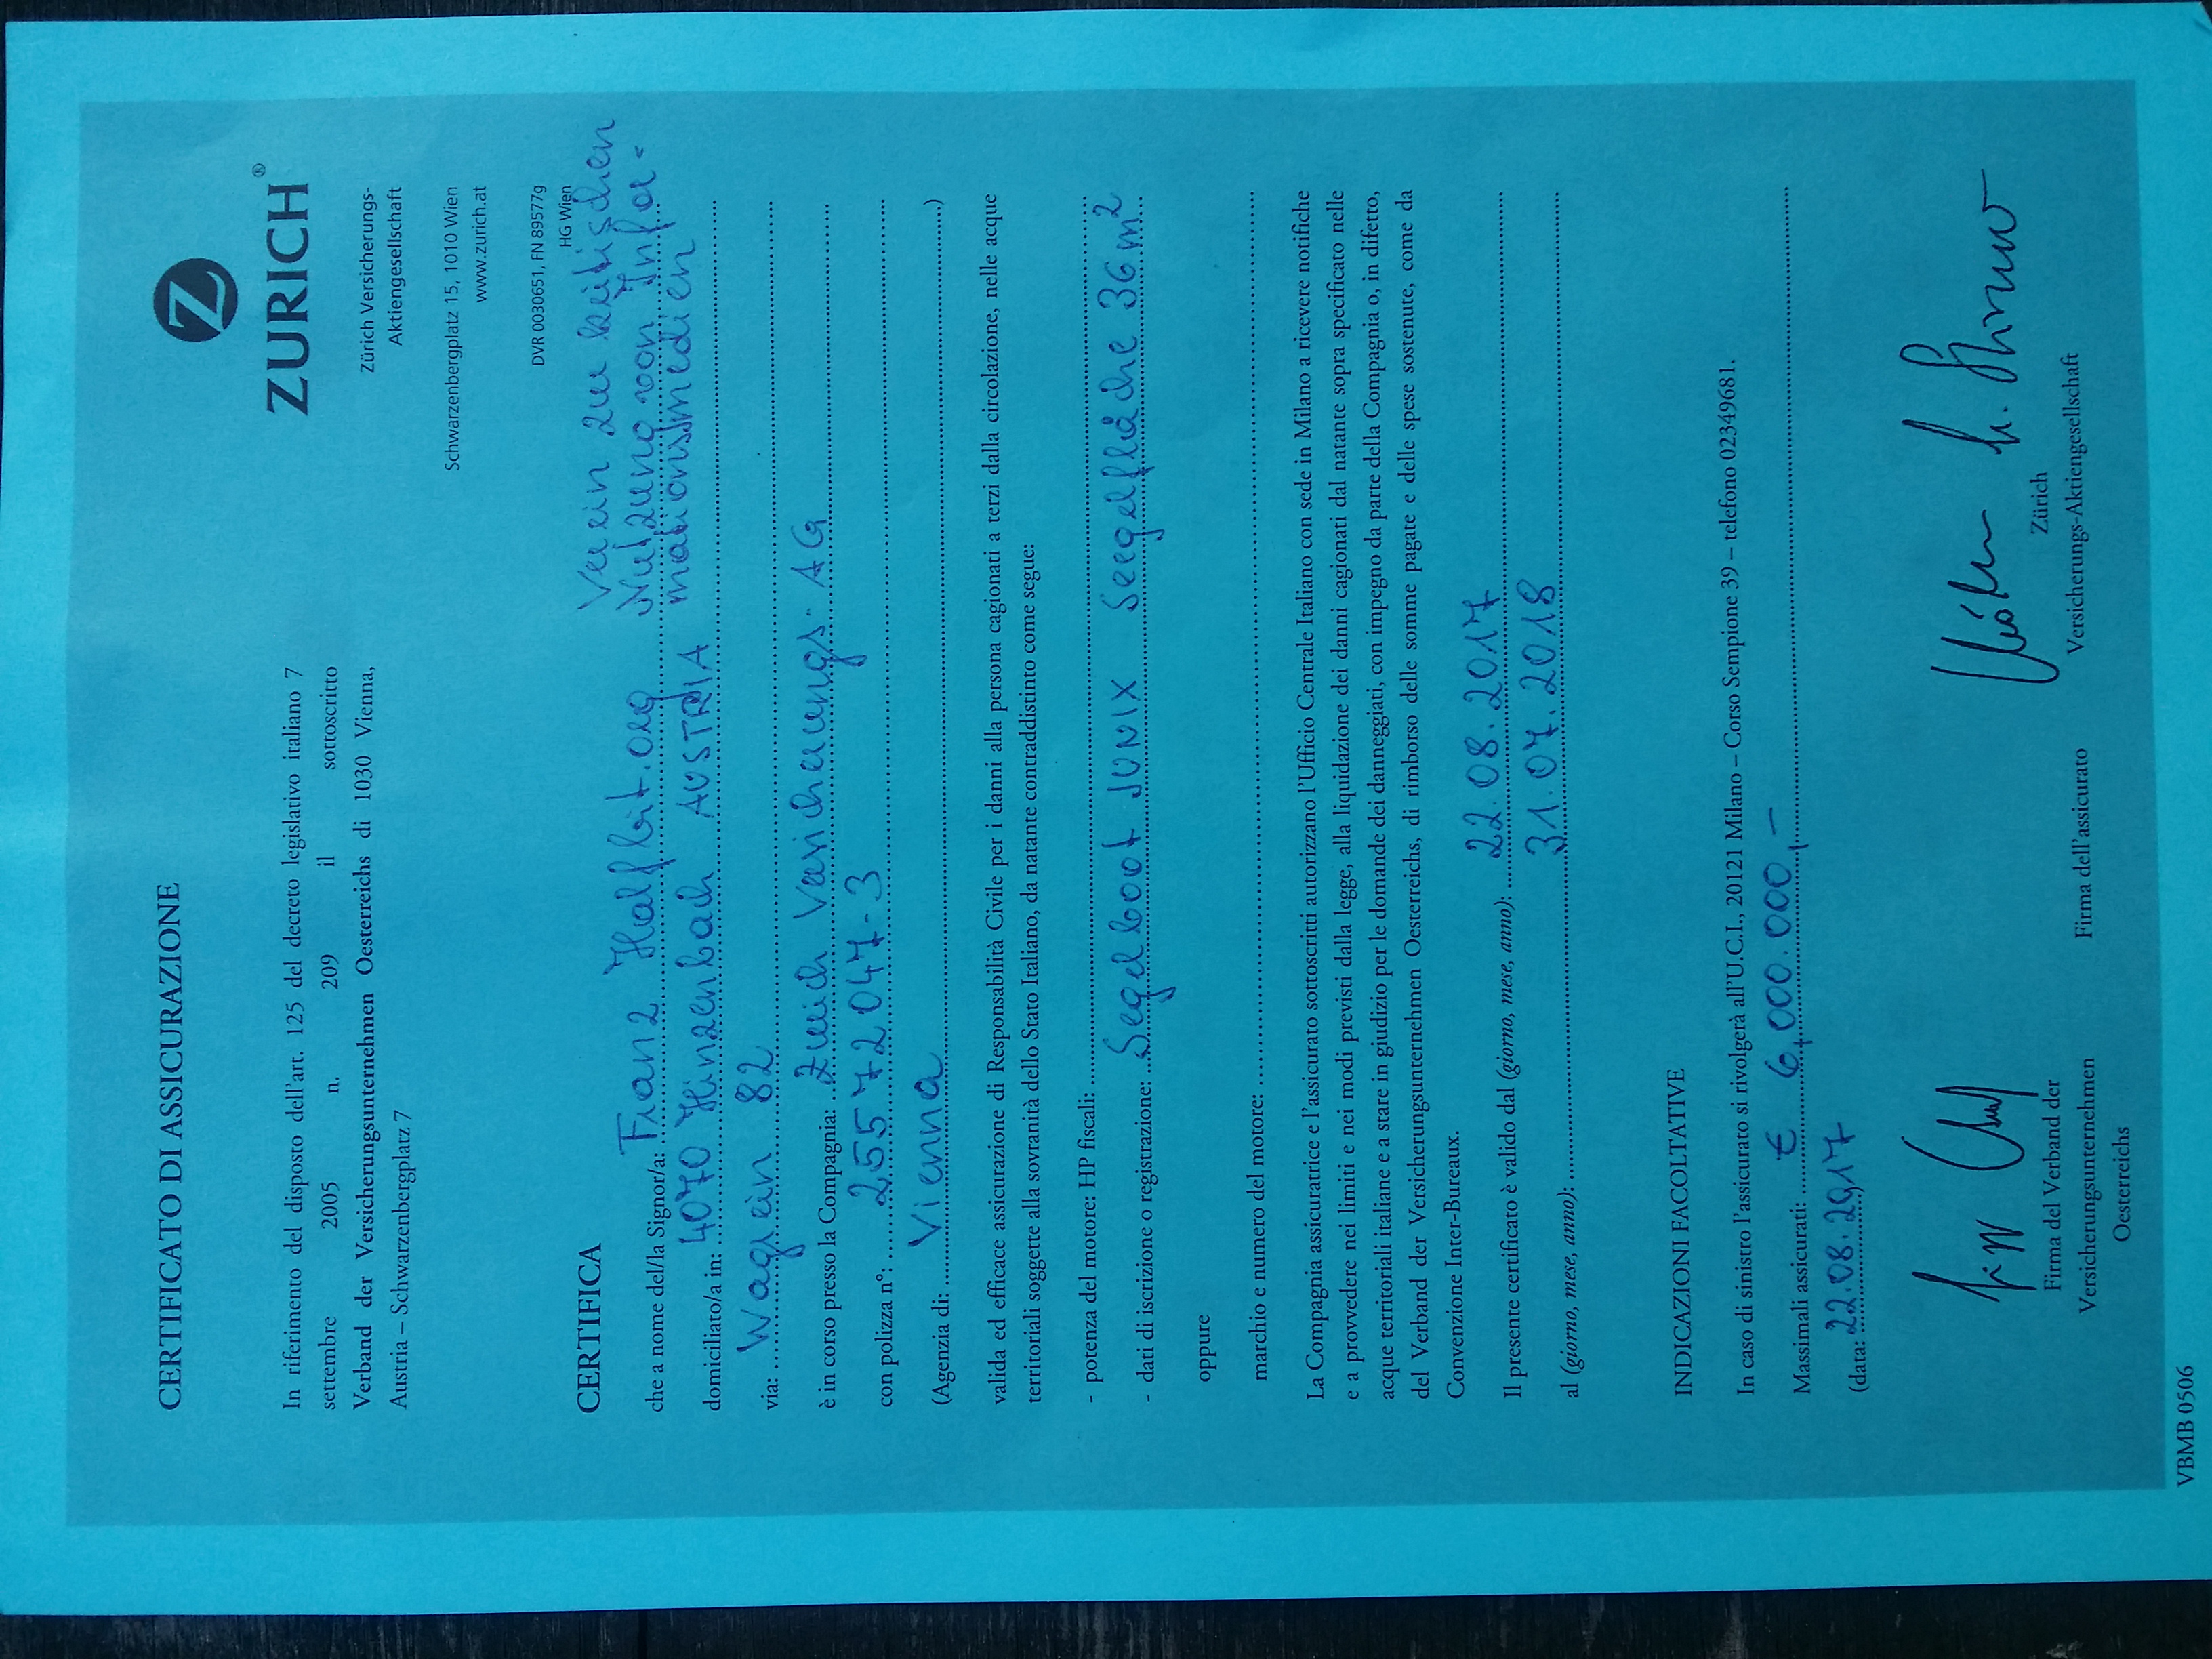 CERTIFICATO DI ASSICURAZIONE
ZURICH®
Zürich Versicherungs-
Aktiengesellschaft
Schwarzenbergplatz 15, 1010 Wien
www.zurich.at
DVR 0030651, FN 89577g
HG Wien
In riferimento del disposto dell'art. 125 del decreto legislativo italiano 7
settembre 2005 n. 209 il sottoscritto
Verband der Versicherungsunternehmen Oesterreichs di 1030 Vienna,
Austria – Schwarzenbergplatz 7
CERTIFICA
Verein zur kritischen
Nutzung von Infor-
mationsmedien
che a nome del/la Signor/a: Franz Halfbit.org
domiciliato/a in: 4070 Hinzenbach AUSTRIA
via: Wagrain 82
è in corso presso la Compagnia: Zürich Versicherungs-AG
con polizza n°: 25572047-3
(Agenzia di: Vienna)
valida ed efficace assicurazione di Responsabilità Civile per i danni alla persona cagionati a terzi dalla circolazione, nelle acque
territoriali soggette alla sovranità dello Stato Italiano, da natante contraddistinto come segue:
- potenza del motore: HP fiscali:
- dati di iscrizione o registrazione: Segelboot JUNIX Seegelfläche 36m2
oppure
marchio e numero del motore:
La Compagnia assicuratrice e l'assicurato sottoscritti autorizzano l'Ufficio Centrale Italiano con sede in Milano a ricevere notifiche
e a provvedere nei limiti e nei modi previsti dalla legge, alla liquidazione dei danni cagionati dal natante sopra specificato nelle
acque territoriali italiane e a stare in giudizio per le domande dei danneggiati, con impegno da parte della Compagnia o, in difetto,
del Verband der Versicherungsunternehmen Oesterreichs, di rimborso delle somme pagate e delle spese sostenute, come da
Convenzione Inter-Bureaux.
Il presente certificato è valido dal (giorno, mese, anno): 22.08.2017
al (giorno, mese, anno): 31.07.2018
INDICAZIONI FACOLTATIVE
In caso di sinistro l'assicurato si rivolgerà all'U.C.I., 20121 Milano – Corso Sempione 39 – telefono 02349681.
Massimali assicurati: € 6,000.000,-
(data: 22.08.2917)
Firma del Verband der
Versicherungsunternehmen
Oesterreichs
Firma dell'assicurato
Zürich
Versicherungs-Aktiengesellschaft
VBMB 0506